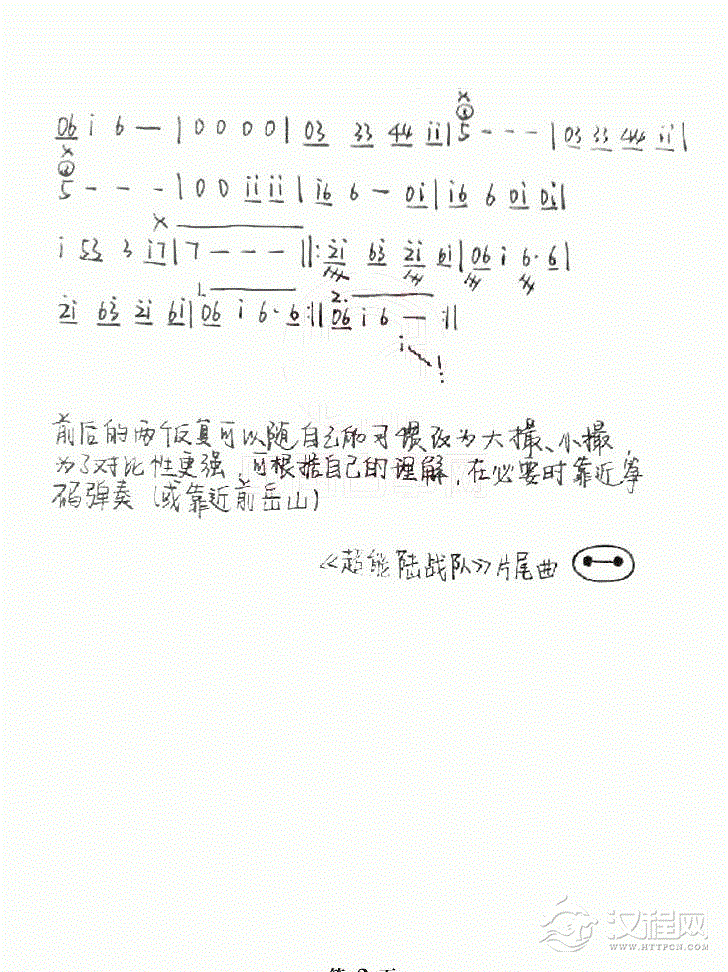 06 i 6 — | 0 0 0 0 | 03 33 44 ii | 5 - - - | 03 33 44 ii |
5 - - - | 0 0 ii ii | i6 6 - 0i | i6 6 0i 0i |
i 53 3 i7 | 7 - - - ||: 2i 63 2i 6i | 06 i 6· 6 |
1. 2.
2i 63 2i 6i | 06 i 6· 6 :|| 06 i 6 — :||
前后的两个反复可以随自己的习惯改为大撮、小撮,
为了对比性更强,可根据自己的理解,在必要时靠近筝
码弹奏(或靠近前岳山)
《超能陆战队》片尾曲
汉程网
WWW.HTTPCN.COM